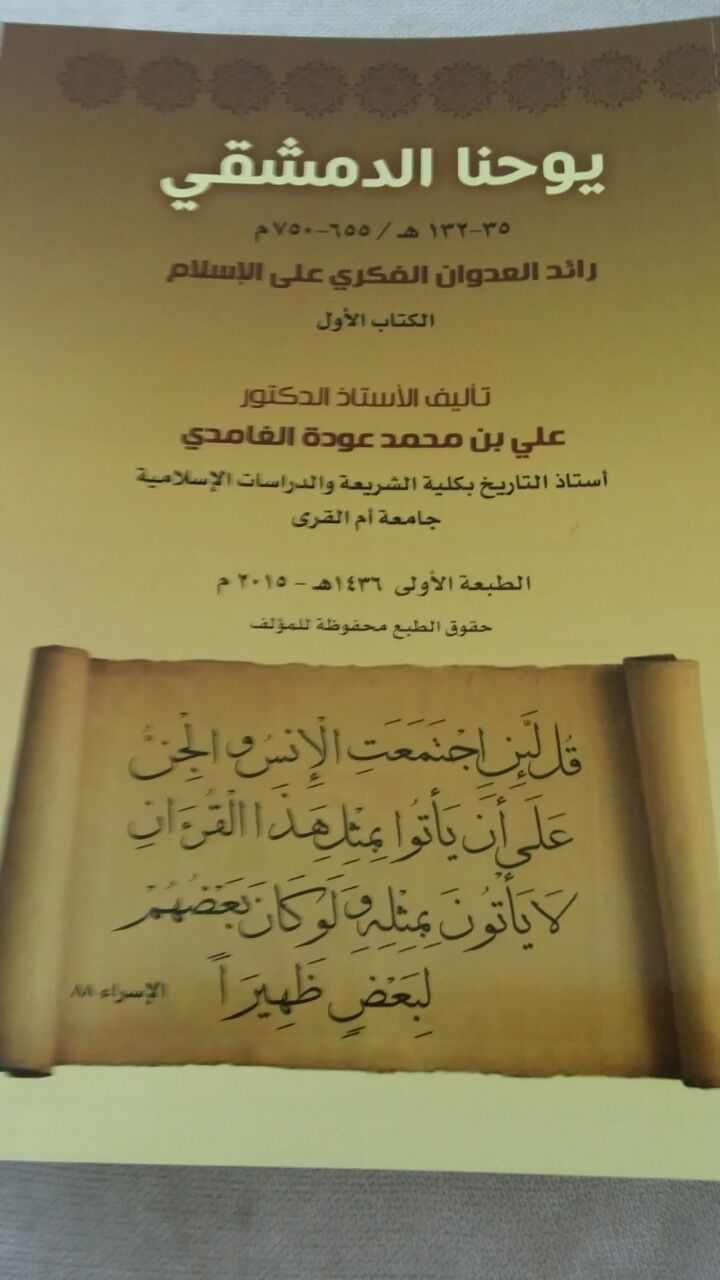 يوحنا الدمشقي
٣٥-١٣٢ هـ / ٦٥٥-٧٥٠ م
رائد العدوان الفكري على الإسلام
الكتاب الأول
تأليف الأستاذ الدكتور
علي بن محمد عودة الغامدي
أستاذ التاريخ بكلية الشريعة والدراسات الإسلامية
جامعة أم القرى
الطبعة الأولى ١٤٣٦هـ - ٢٠١٥ م
حقوق الطبع محفوظة للمؤلف
قُل لَّئِنِ اِجْتَمَعَتِ الْإِنسُ وَالْجِنُّ
عَلَى أَن يَأْتُوا بِمِثْلِ هَذَا الْقُرْءَانِ
لَا يَأْتُونَ بِمِثْلِهِ وَلَوْ كَانَ بَعْضُهُمْ
لِبَعْضٍ ظَهِيرَاً
الإسراء ٨٨